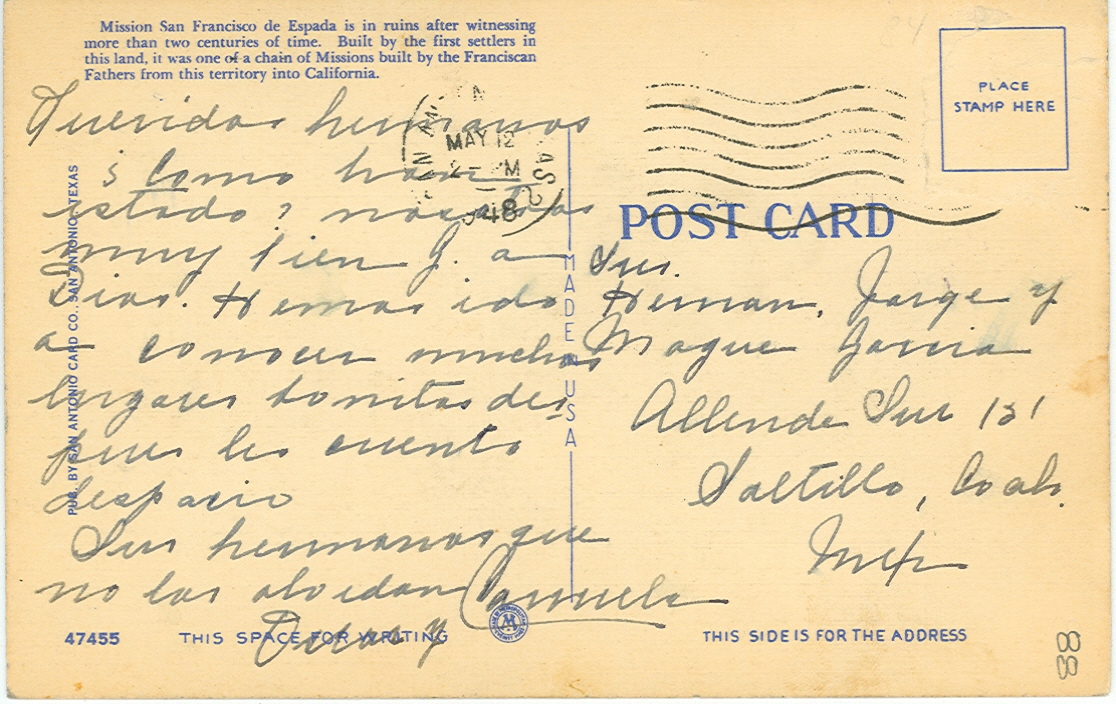 Mission San Francisco de Espada is in ruins after witnessing
more than two centuries of time. Built by the first settlers in
this land, it was one of a chain of Missions built by the Franciscan
Fathers from this territory into California.
PLACE
STAMP HERE
MAY 12
48
POST CARD
Queridos hermanos
¿Como han
estado? nosotros
muy bien g. a
Dios. Hemos ido
a conocer muchos
lugares bonitos des
pues les cuento
despacio
Sus hermanos que
no los olvidan Consuelo
y
Srs.
Hernan, Jorge y
Maque Garcia
Allende Sur 131
Saltillo, Coah.
Mex
MADE IN USA
PUB. BY SAN ANTONIO CARD CO., SAN ANTONIO, TEXAS
47455
THIS SPACE FOR WRITING
M
THIS SIDE IS FOR THE ADDRESS
88